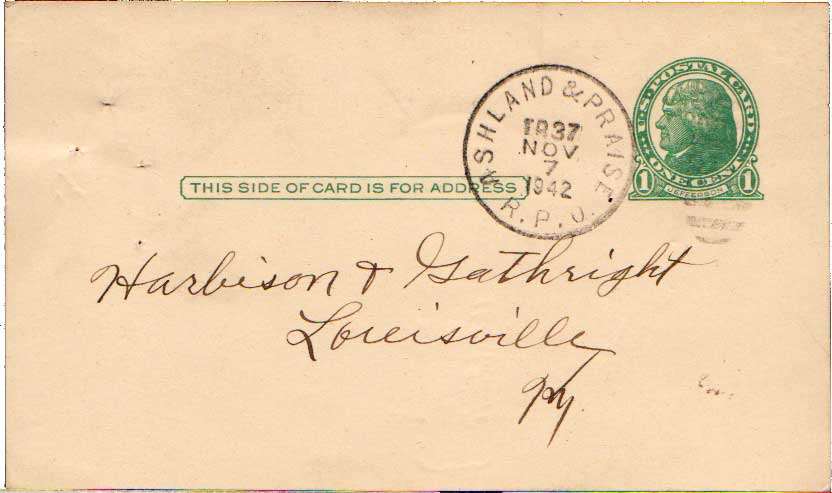 U.S. POSTAL CARD
ONE CENT
1 JEFFERSON 1
ASHLAND & PRAISE
TR37
NOV
7
1942
R.P.O.
THIS SIDE OF CARD IS FOR ADDRESS
Harbison & Gathright
Louisville
Ky.